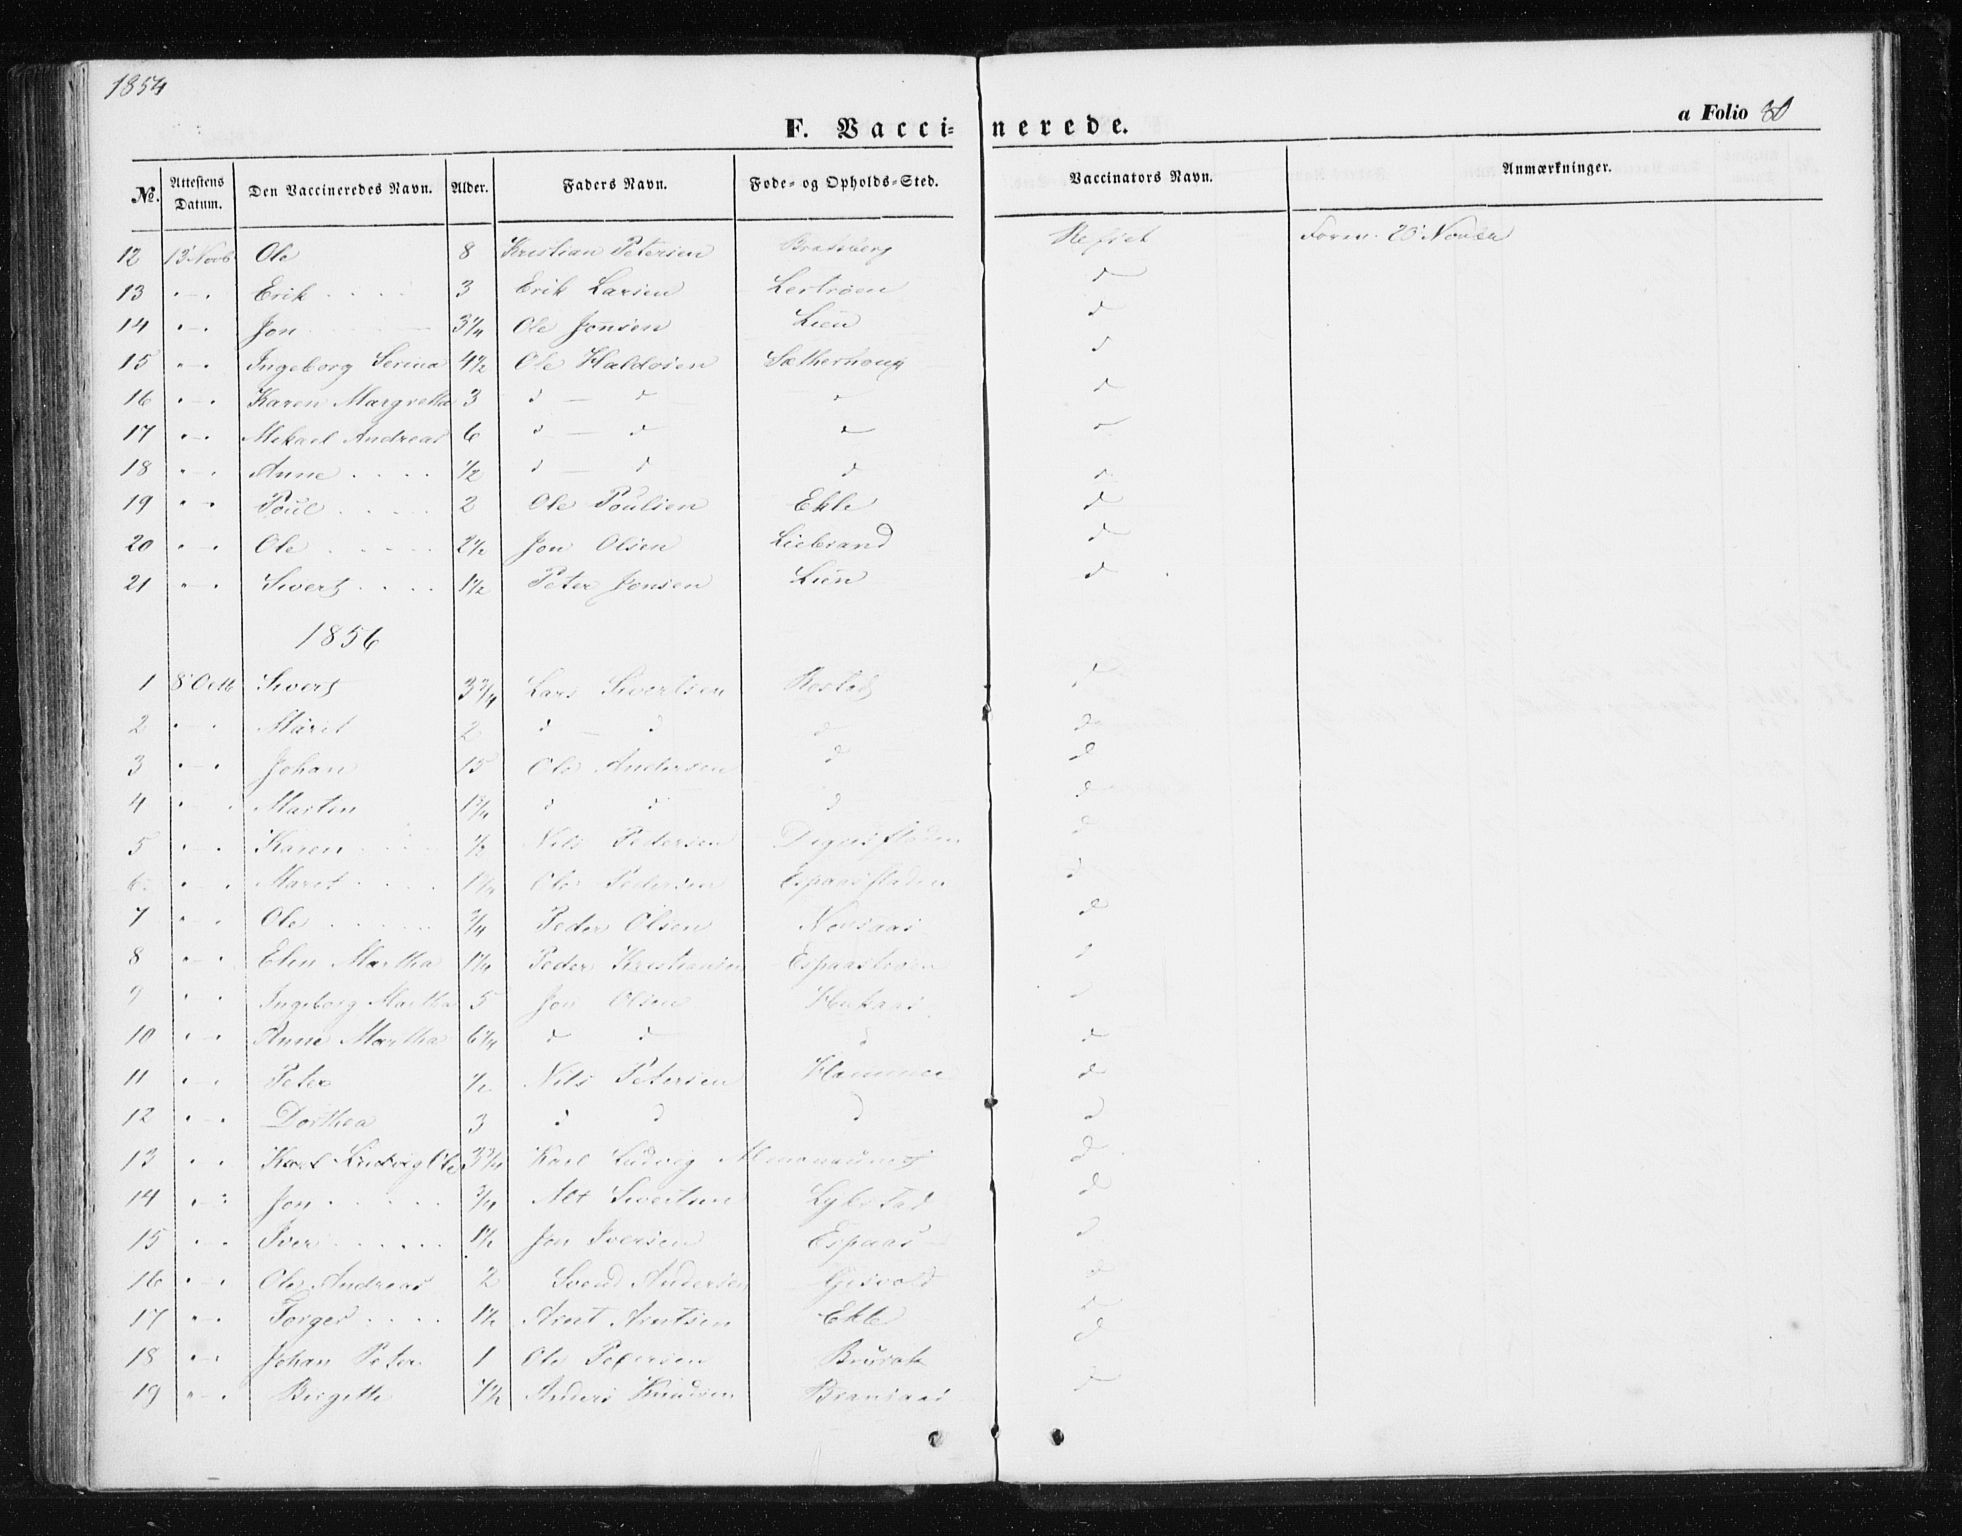 1854
F. Vaccinerede.
a Folio 80
No. Attestens Datum. Den Vaccineredes Navn. Alder. Faders Navn. Føde- og Opholds-Sted. Vaccinators Navn. Anmærkninger.
12 13 Novb Ole 8 Kristian Petersen Bratsberg Refset 20 Novbr
13 " - " Erik 3 Erik Larsen Lertrøen d
14 " - " Jon 3 1/4 Ole Jonsen Lien d
15 " - " Ingeborg Serina 4 1/2 Ole Haldosen Sætherhoug d
16 " - " Karen Margretha 3 d - d d d
17 " - " Mikael Andreas 6 d - d d d
18 " - " Anne 1/2 d - d d d
19 " - " Poul 2 Ole Poulsen Ekle d
20 " - " Ole 2 1/2 Jon Olsen Liebrand d
21 " - " Sivert 1 1/2 Peter Jonsen Lien d
1856
1 8 Octb Sivert 3 3/4 Lars Sivertsen Rostad d
2 " - " Marit 2 d - d d d
3 " - " Johan 15 Ole Andersen d d
4 " - " Marten 1 3/4 d d d d
5 " - " Karen 1/2 Nils Pedersen d
6 " - " Marit Ole Pedersen Espaasstaden d
7 " - " Ole 3/4 Peder Olsen d
8 " - " Elen Martha 1 1/4 Peder Kristiansen Espaastrøen d
9 " - " Ingeborg Martha 5 Jon Olsen d
10 " - " Anne Martha 6 1/4 d d d d
11 " - " Peter 1/2 Nils Petersen Hammer d
12 " - " Dorthea 3 d d d d
13 " - " Karl Ludvig Ole 3 3/4 Karl Ludvig d
14 " - " Jon 3/4 Sivertsen Lykstad d
15 " - " Iver 1 1/2 Jon Iversen Espaas d
16 " - " Ole Andreas 2 Svend Andersen Gisvold d
17 " - " Torger 1 1/2 Arnt Arntsen Ekle d
18 " - " Johan Peter 1 Ole Petersen Brurak d
19 " - " Birgitte 1 1/2 Anders Knudsen d